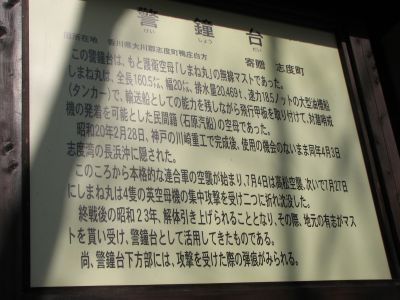 警鐘台
けい しょう だい
寄贈 志度町
所在地 香川県大川郡志度町鴨庄白方
この警鐘台は、もと護衛空母「しまね丸」の無線マストであった。
しまね丸は、全長160.5㍍、幅20㍍、排水量20,469ｔ、速力18.5ノットの大型油槽船
(タンカー)で、輸送船としての能力を残しながら飛行甲板を取り付けて、対潜哨戒
機の発着を可能とした民間籍(石原汽船)の空母であった。
昭和20年2月28日、神戸の川崎重工で完成後、使用の機会のないまま同年4月3日
志度湾の長浜沖に隠された。
このころから本格的な連合軍の空襲が始まり、7月4日は高松空襲、次いで7月27日
にしまね丸は4隻の英空母機の集中攻撃を受け二つに折れ沈没した。
終戦後の昭和23年、解体引き上げられることとなり、その際、地元の有志がマス
トを貰い受け、警鐘台として活用してきたものである。
尚、警鐘台下方部には、攻撃を受けた際の弾痕がみられる。